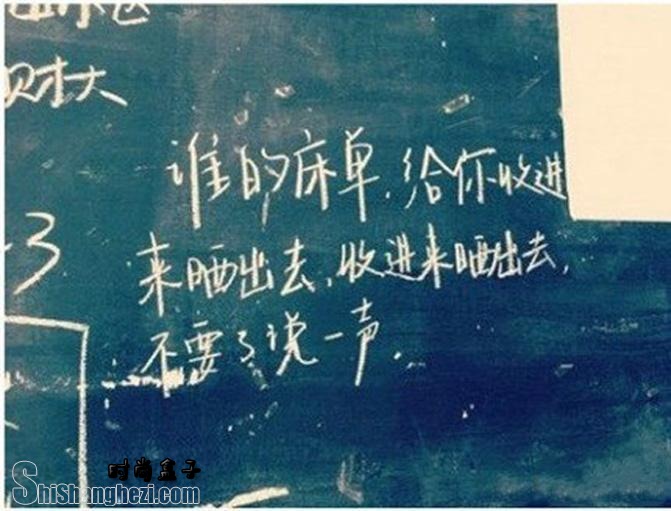 财大
谁的床单,给你收进
-3
来晒出去,收进来晒出去,
不要了说一声.
时尚盒子
Shishanghezi.com